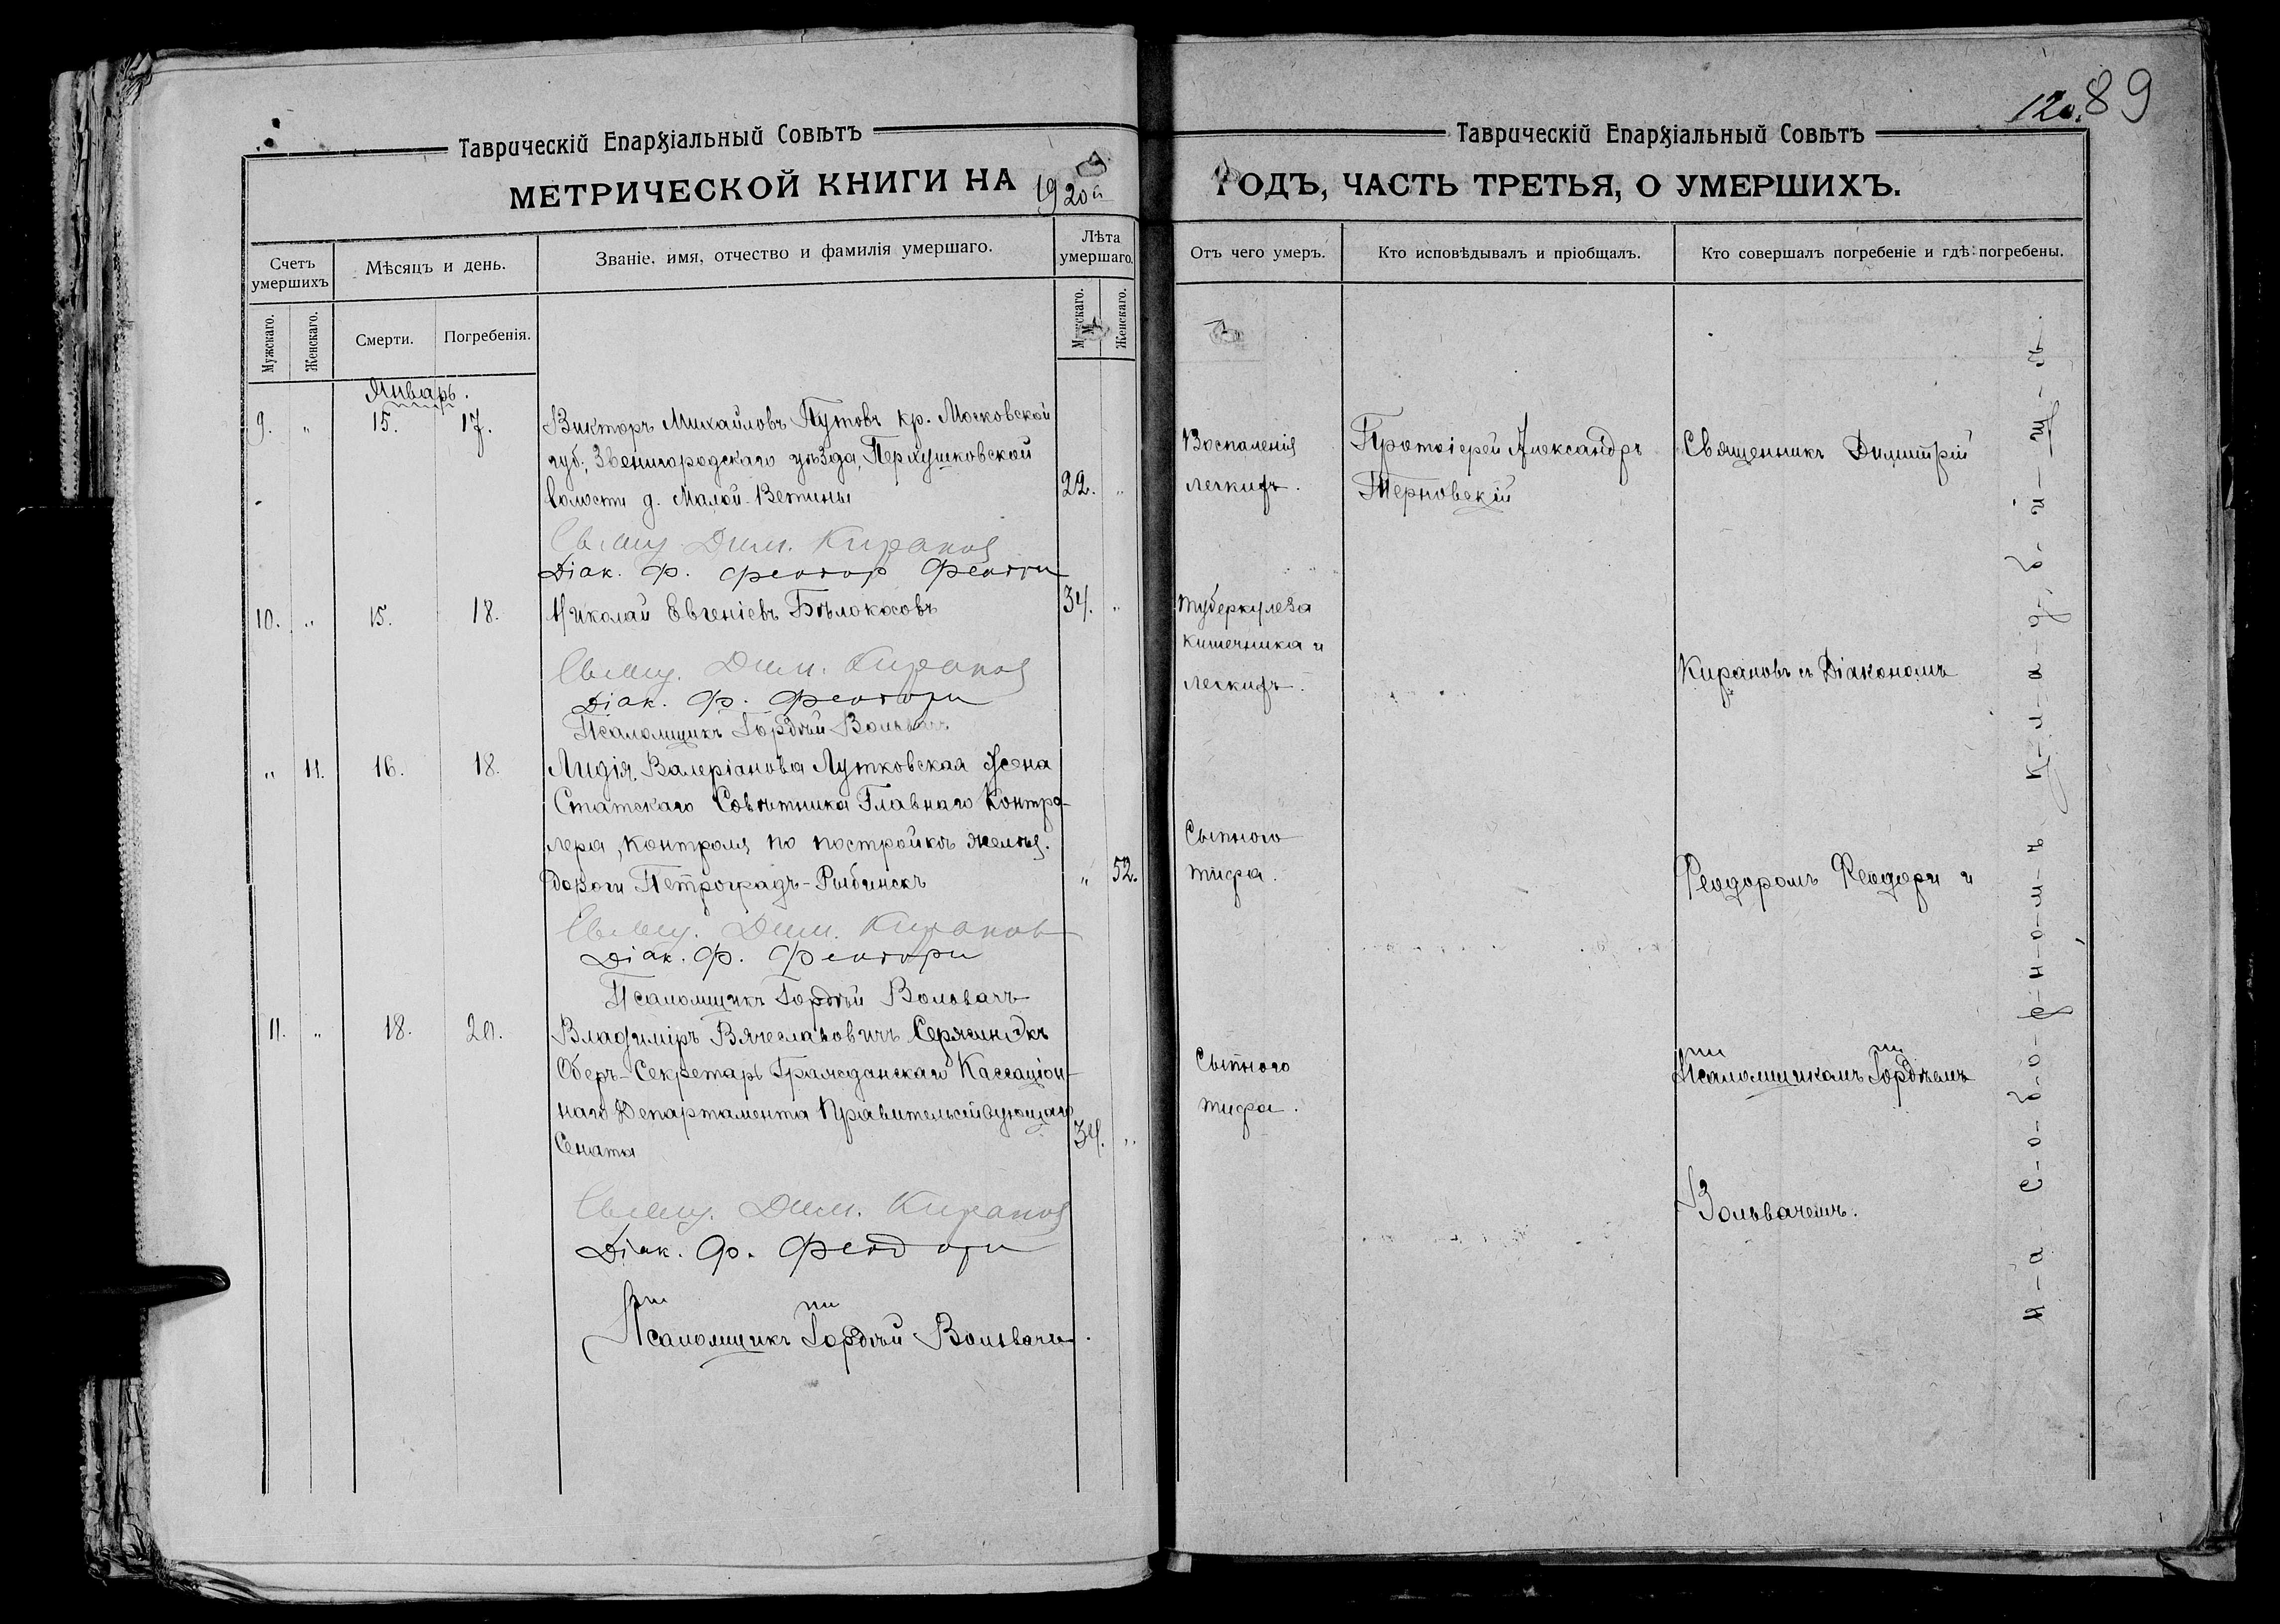 Таврическій Епархіальный Совѣтъ
МЕТРИЧЕСКОЙ КНИГИ НА 1920й
Счетъ умершихъ
Мѣсяцъ и день.
Званіе, имя, отчество и фамилія умершаго.
Лѣта умершаго.
Мужскаго.
Женскаго.
Смерти.
Погребенія.
Мужскаго.
Женскаго.
Январь.
9. " 15. 17. Викторъ Михайловъ Путовъ кр. Московской
губ., Звенигородскаго уѣзда, Перхушковской
волости д. Малой-Ветины 22. "
Свящ. Дим. Киранов
Діак. Ф. Феодор Феодори
10. " 15. 18. Николай Евгеніевъ Бѣлокосовъ 34. "
Свящ. Дим. Киранов
Діак. Ф. Феодори
Псаломщикъ Гордѣй Вольвачъ
" 11. 16. 18. Лидія Валеріанова Лутковская жена
Статскаго Совѣтника Главнаго Контро-
лера, контроля по постройкѣ желѣз.
дороги Петроградъ-Рыбинскъ " 52.
Свящ. Дим. Киранов
Діак. Ф. Феодори
Псаломщикъ Гордѣй Вольвачъ
11. " 18. 20. Владиміръ Вячеславовичъ
Оберъ-Секретарь Гражданскаго Кассаціон-
наго Департамента Правительствующаго
Сената 34. "
Свящ. Дим. Киранов
Діак. Ф. Феодори
Псаломщикъ Гордѣй Вольвачъ.
120. 89
Таврическій Епархіальный Совѣтъ
ГОДЪ, ЧАСТЬ ТРЕТЬЯ, О УМЕРШИХЪ.
Отъ чего умеръ.
Кто исповѣдывалъ и пріобщалъ.
Кто совершалъ погребеніе и гдѣ погребены.
Воспаленія
легкихъ.
Протоіерей Александръ
Терновскій
Священникъ Димитрій
Туберкулеза
кишечника и
легкихъ.
Кирановъ съ Діакономъ
Сыпного
тифа.
Феодоромъ Феодори и
Сыпного
тифа.
Псаломщикомъ Гордѣемъ
Вольвачемъ.
Н-а С-о-б-о-р-н-о-м-ъ К-л-а-д-б-и-щ-ѣ-.